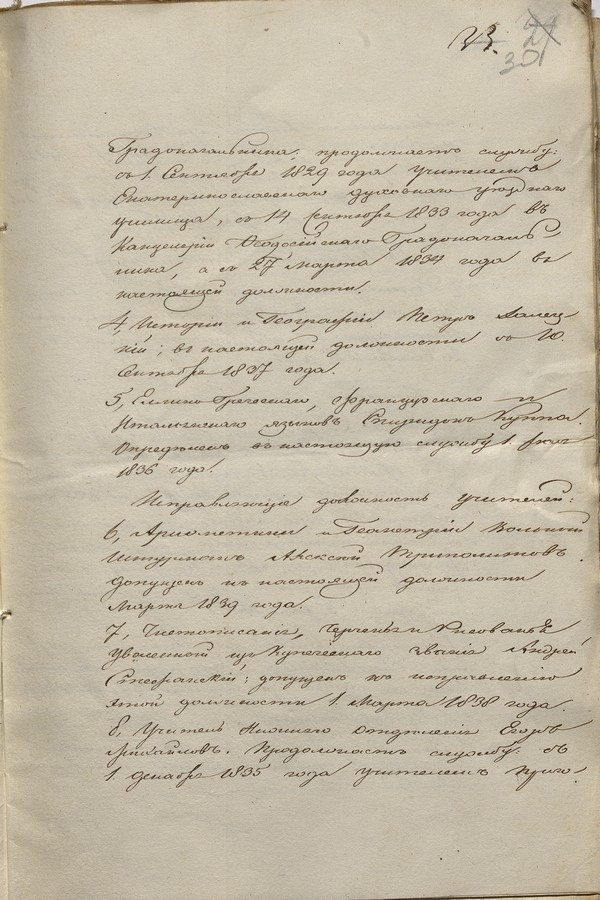 23. 24
30
Градоначальника; продолжаетъ службу:
съ 1. Сентября 1829 года Учителемъ
Екатеринославскаго духовнаго уѣзднаго
училища, съ 14 Сентября 1833 года въ
Канцеляріи Ѳеодосійскаго Градоначаль-
ника, а съ 27 Марта 1834 года въ
настоящей должности.
4, Исторіи и Географіи Петръ
въ настоящей должности съ 10.
Сентября 1837 года.
5, Еллино Греческаго, Французскаго и
Итальянскаго языковъ Спиридонъ Куппа.
Опредѣленъ въ настоящую службу 1.
1836 года.
Исправляющіе должность учителей:
6, Ариѳметики и Геометріи Вольный
Штурманъ Триполитовъ
допущенъ къ настоящей должности
Марта 1839 года.
7, Чистописанія, Черченія и Рисованья
Уволенный изъ Купеческаго званія Андрей
Стефанскій; допущенъ къ исправленію
этой должности 1. Марта 1838 года.
8, Учитель Низшаго Отдѣленія Егоръ
Михайловъ. Продолжаетъ службу: съ
1. декабря 1835 года учителемъ приго-